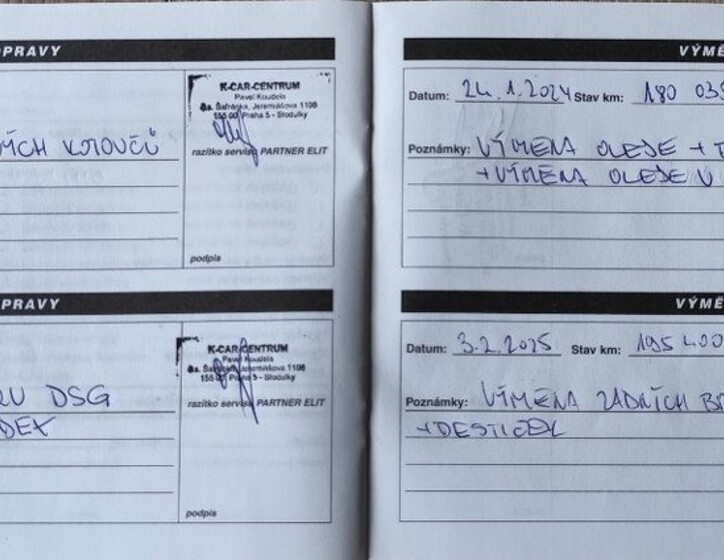 OPRAVY
K-CAR-CENTRUM
Pavel Koudela
Jeremiášova 1106
155 00 Praha 5 - Stodůlky
razítko servisu PARTNER ELIT
KOTOUČŮ
podpis
PRAVY
K-CAR-CENTRUM
Pavel Koudela
Jeremiášova 1106
155 00 Praha 5 - Stodůlky
DSG
razítko servisu PARTNER ELIT
podpis
VÝMĚ
Datum: 24.1.2024 Stav km: 180 039
Poznámky: VÝMĚNA OLEJE +
+VÝMĚNA OLEJE V
VÝMĚ
Datum: 3.2.2025 Stav km: 195 400
Poznámky: VÝMĚNA ZADNÍCH
+DESTIČEK